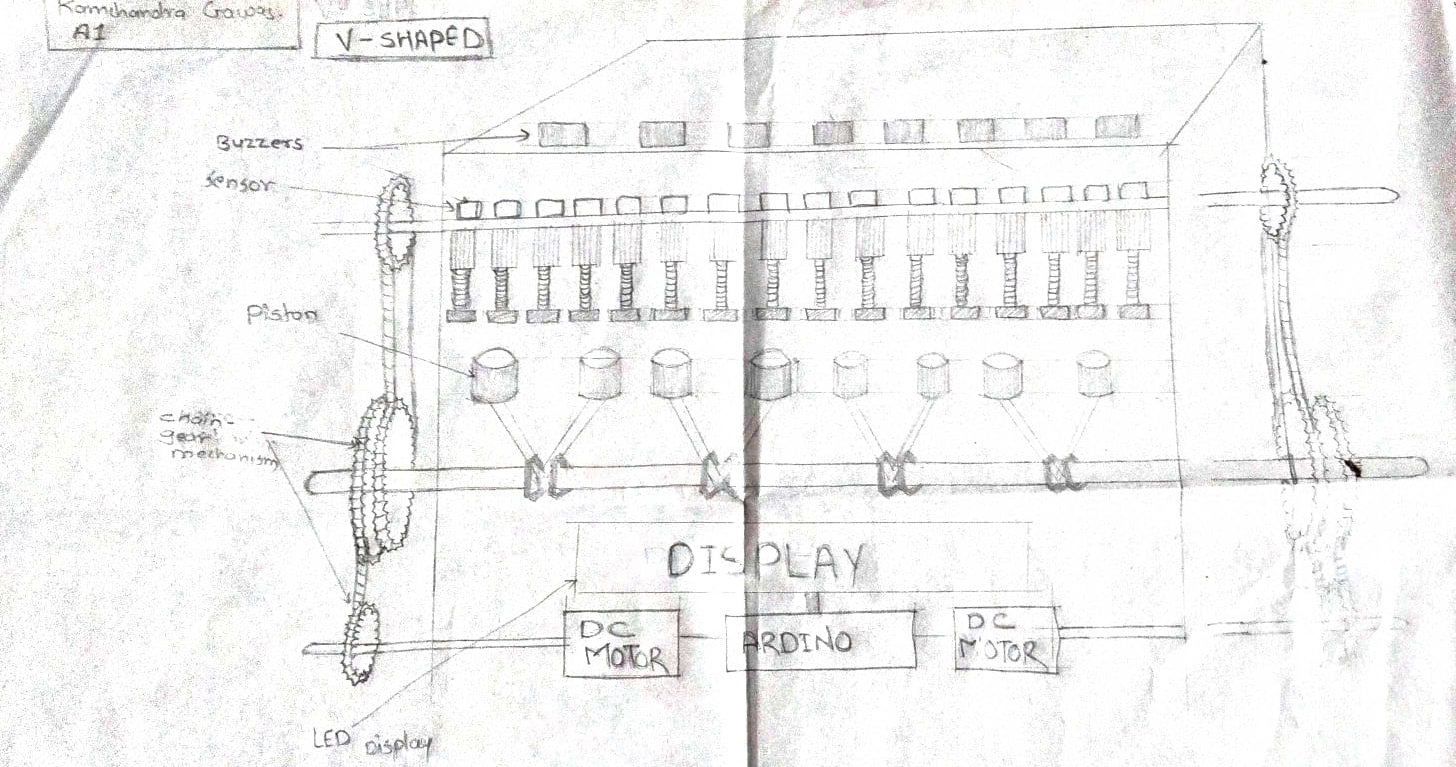 A1
V-SHAPED
Buzzers
Sensor
Piston
chain-
gear
mechanism
DISPLAY
DC
MOTOR
ARDINO
DC
MOTOR
LED Display